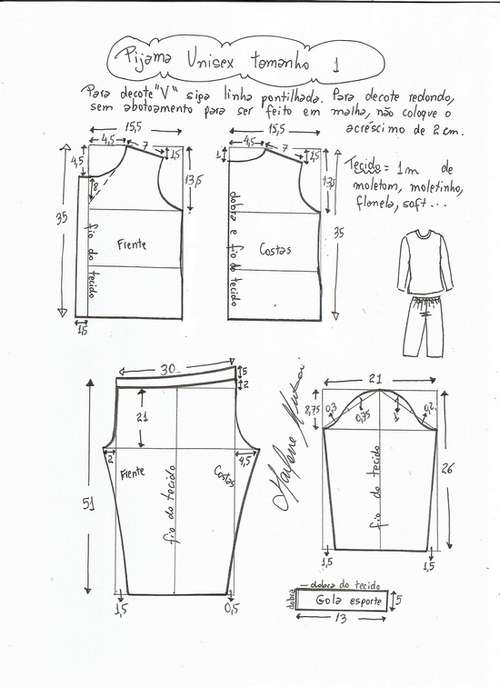 Pijama Unisex tamanho 1
Para decote "V" siga linha pontilhada. Para decote redondo,
sem abotoamento para ser feito em malha, não coloque o
acréscimo de 2 cm.
15,5
15,5
4,5
7
1,5
4,5
8
13,5
35
Frente
fio do tecido
1,5
4,5
7
1,5
1
13,5
35
dobra e fio do tecido
Costas
Tecido = 1m de
moletom, moletinho,
flanela, soft...
30
5
2
21
51
2
4,5
Frente
Costas
fio do tecido
1,5
0,5
21
8,75
0,3
0,75
1
0,2
26
fio do tecido
1,5
1,5
dobra do tecido
dobra
Gola esporte
5
13